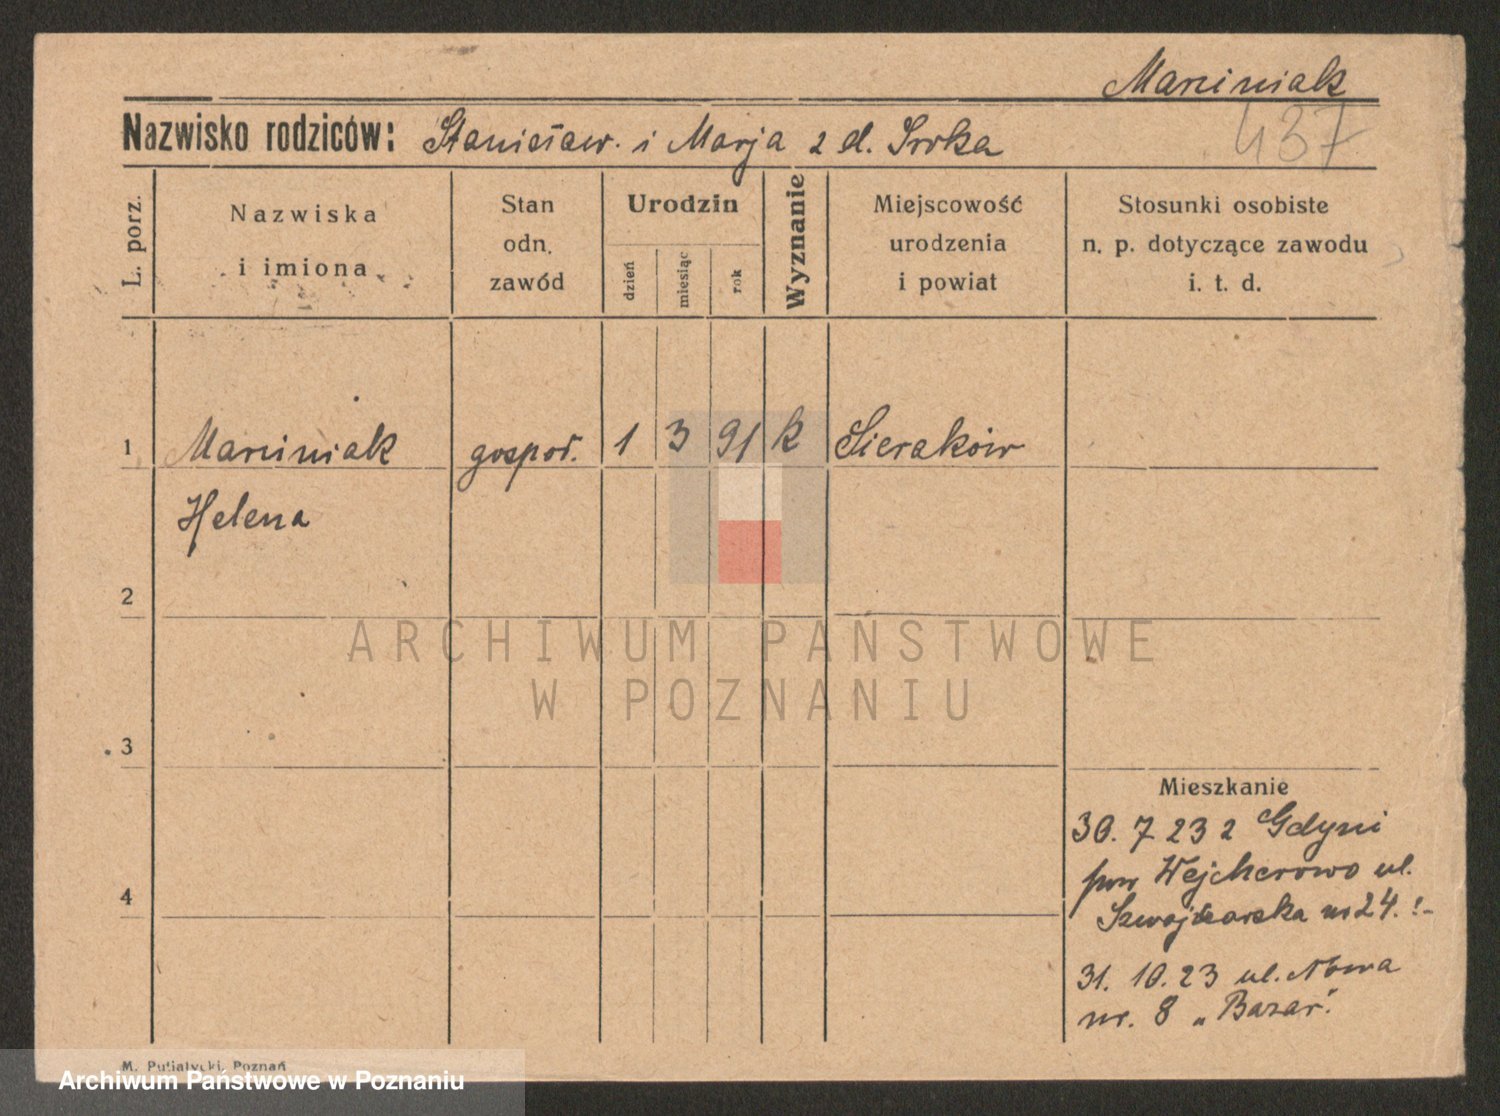 Marciniak
437
Nazwisko rodziców: Stanisław. i Marja z d. Sroka
L. porz.
Nazwiska
i imiona
Stan
odn.
zawód
Urodzin
dzień
miesiąc
rok
Wyznanie
Miejscowość
urodzenia
i powiat
Stosunki osobiste
n. p. dotyczące zawodu
i. t. d.
1 Marciniak gospod. 1 3 91 k Sieraków
Helena
2
3
4
ARCHIWUM PAŃSTWOWE
W POZNANIU
Mieszkanie
30. 7 23 z Gdyni
pow Wejcherowo ul.
Szwajcarska nr 24. !-
31. 10. 23 ul. Nowa
nr. 8 „Bazar".
M. Putiatycki, Poznań
Archiwum Państwowe w Poznaniu